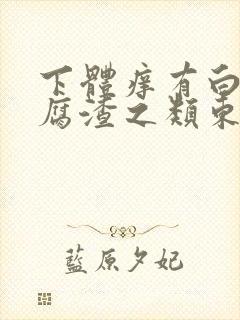 下體痒有白
腐渣之類東
藍原夕妃